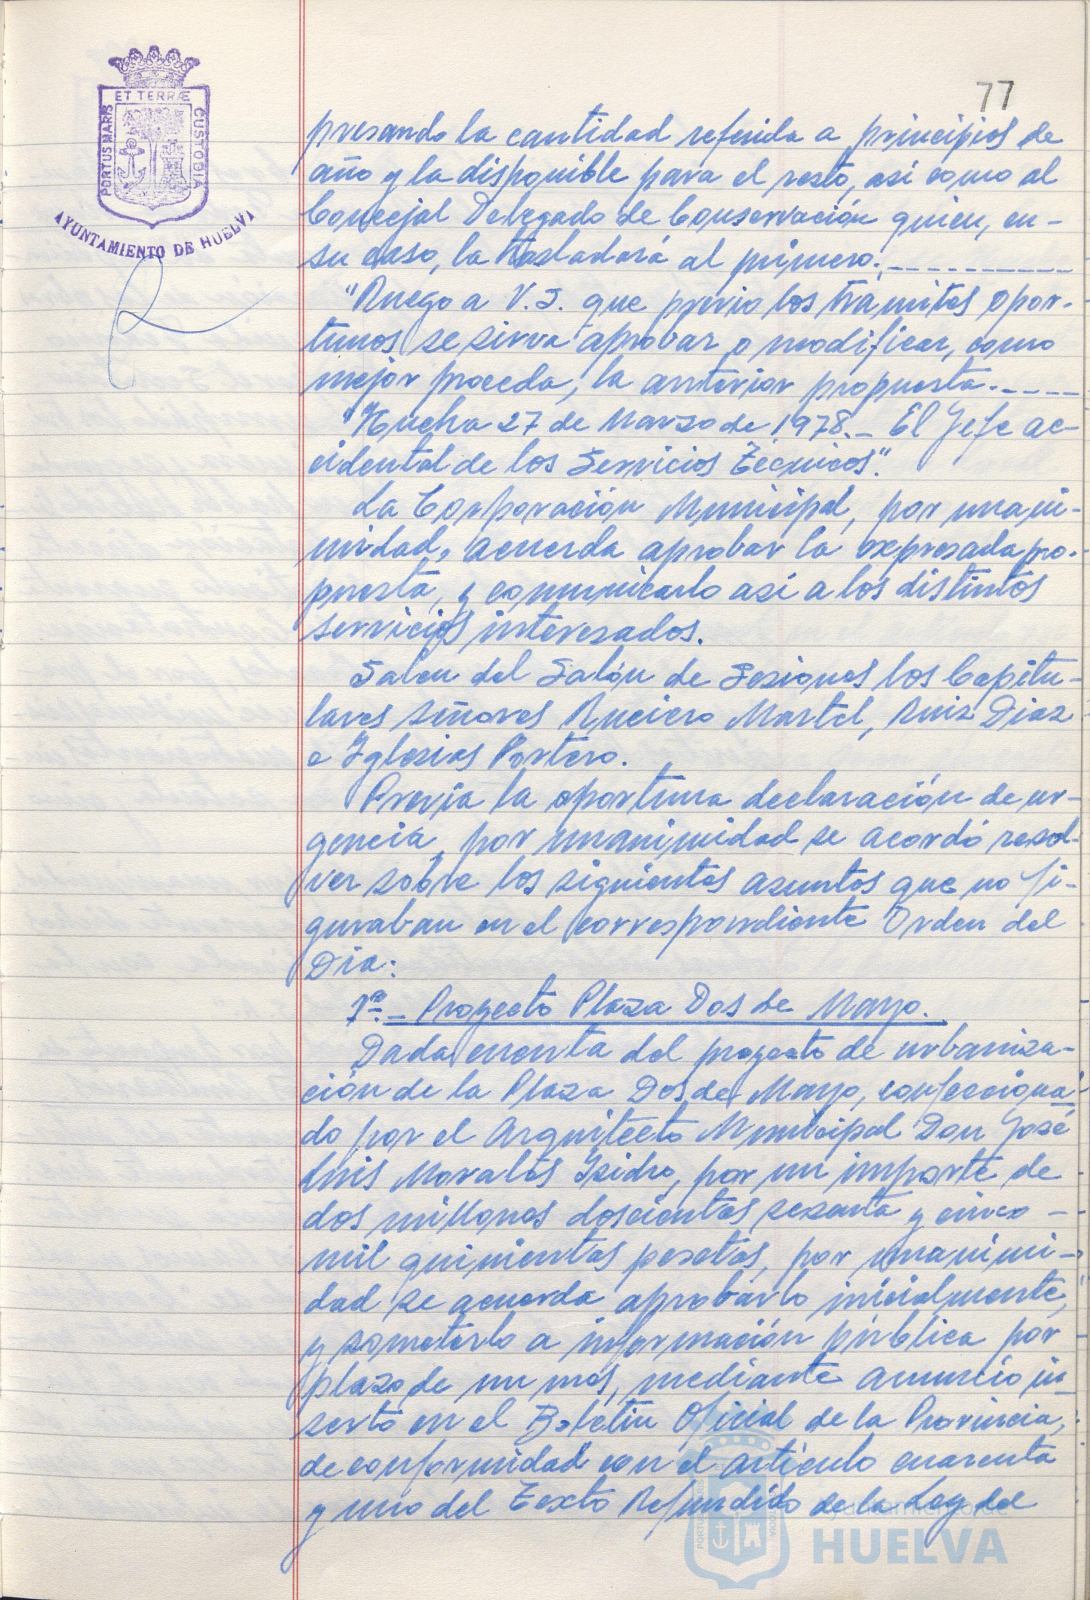 77
ET TERRÆ
PORTUS MARIS
CUSTODIA
AYUNTAMIENTO DE HUELVA
presando la cantidad referida a principios de
año y la disponible para el resto, así como al
Concejal Delegado de Conservación quien, en
su caso, la trasladará al primero.
"Ruego a V.I. que previo los trámites opor-
tunos se sirva aprobar o modificar, como
mejor proceda, la anterior propuesta.
"Huelva 27 de Marzo de 1978.- El Jefe ac-
cidental de los Servicios Técnicos".
La Corporación Municipal, por unani-
midad, acuerda aprobar la expresada pro-
puesta, y comunicarlo así a los distintos
servicios interesados.
Salen del Salón de Sesiones los Capitu-
lares señores Ruciero Martel, Ruiz Diaz
e Iglesias Portero.
Previa la oportuna declaración de ur-
gencia, por unanimidad se acordó resol-
ver sobre los siguientes asuntos que no fi-
guraban en el correspondiente Orden del
Día:
1º.- Proyecto Plaza Dos de Mayo.
Dada cuenta del proyecto de urbaniza-
ción de la Plaza Dos de Mayo, confecciona-
do por el Arquitecto Municipal Don José
Luis Morales Isidro, por un importe de
dos millones doscientas sesenta y cinco
mil quinientas pesetas, por unanimi-
dad se acuerda aprobarlo inicialmente,
y someterlo a información pública por
plazo de un mes, mediante anuncio in-
serto en el Boletín Oficial de la Provincia,
de conformidad con el artículo cuarenta
y uno del Texto Refundido de la Ley del
Ayuntamiento de
HUELVA